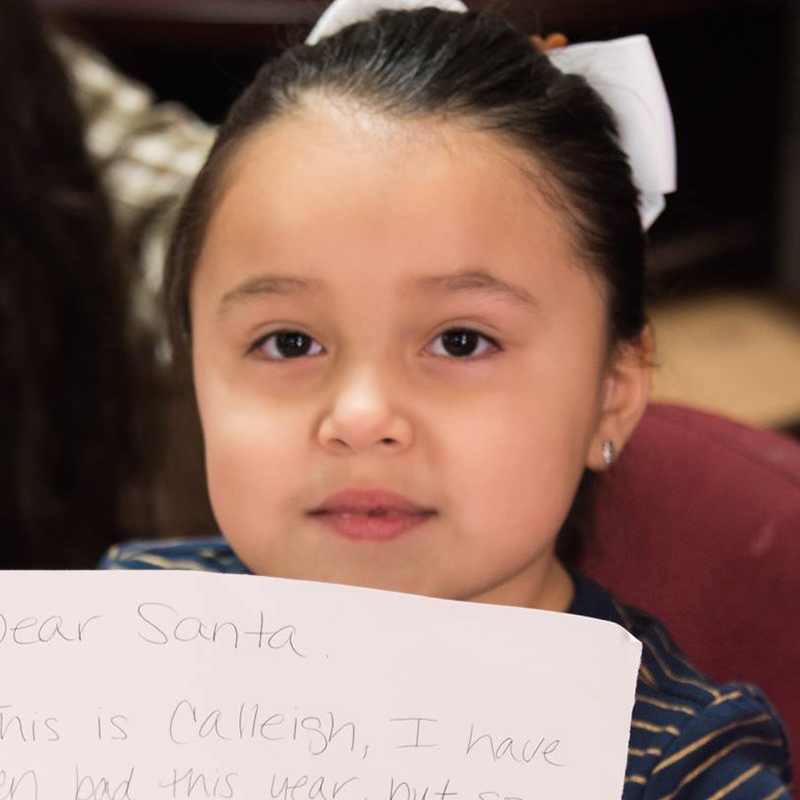 Dear Santa.
This is Calleigh, I have
bad this year, but